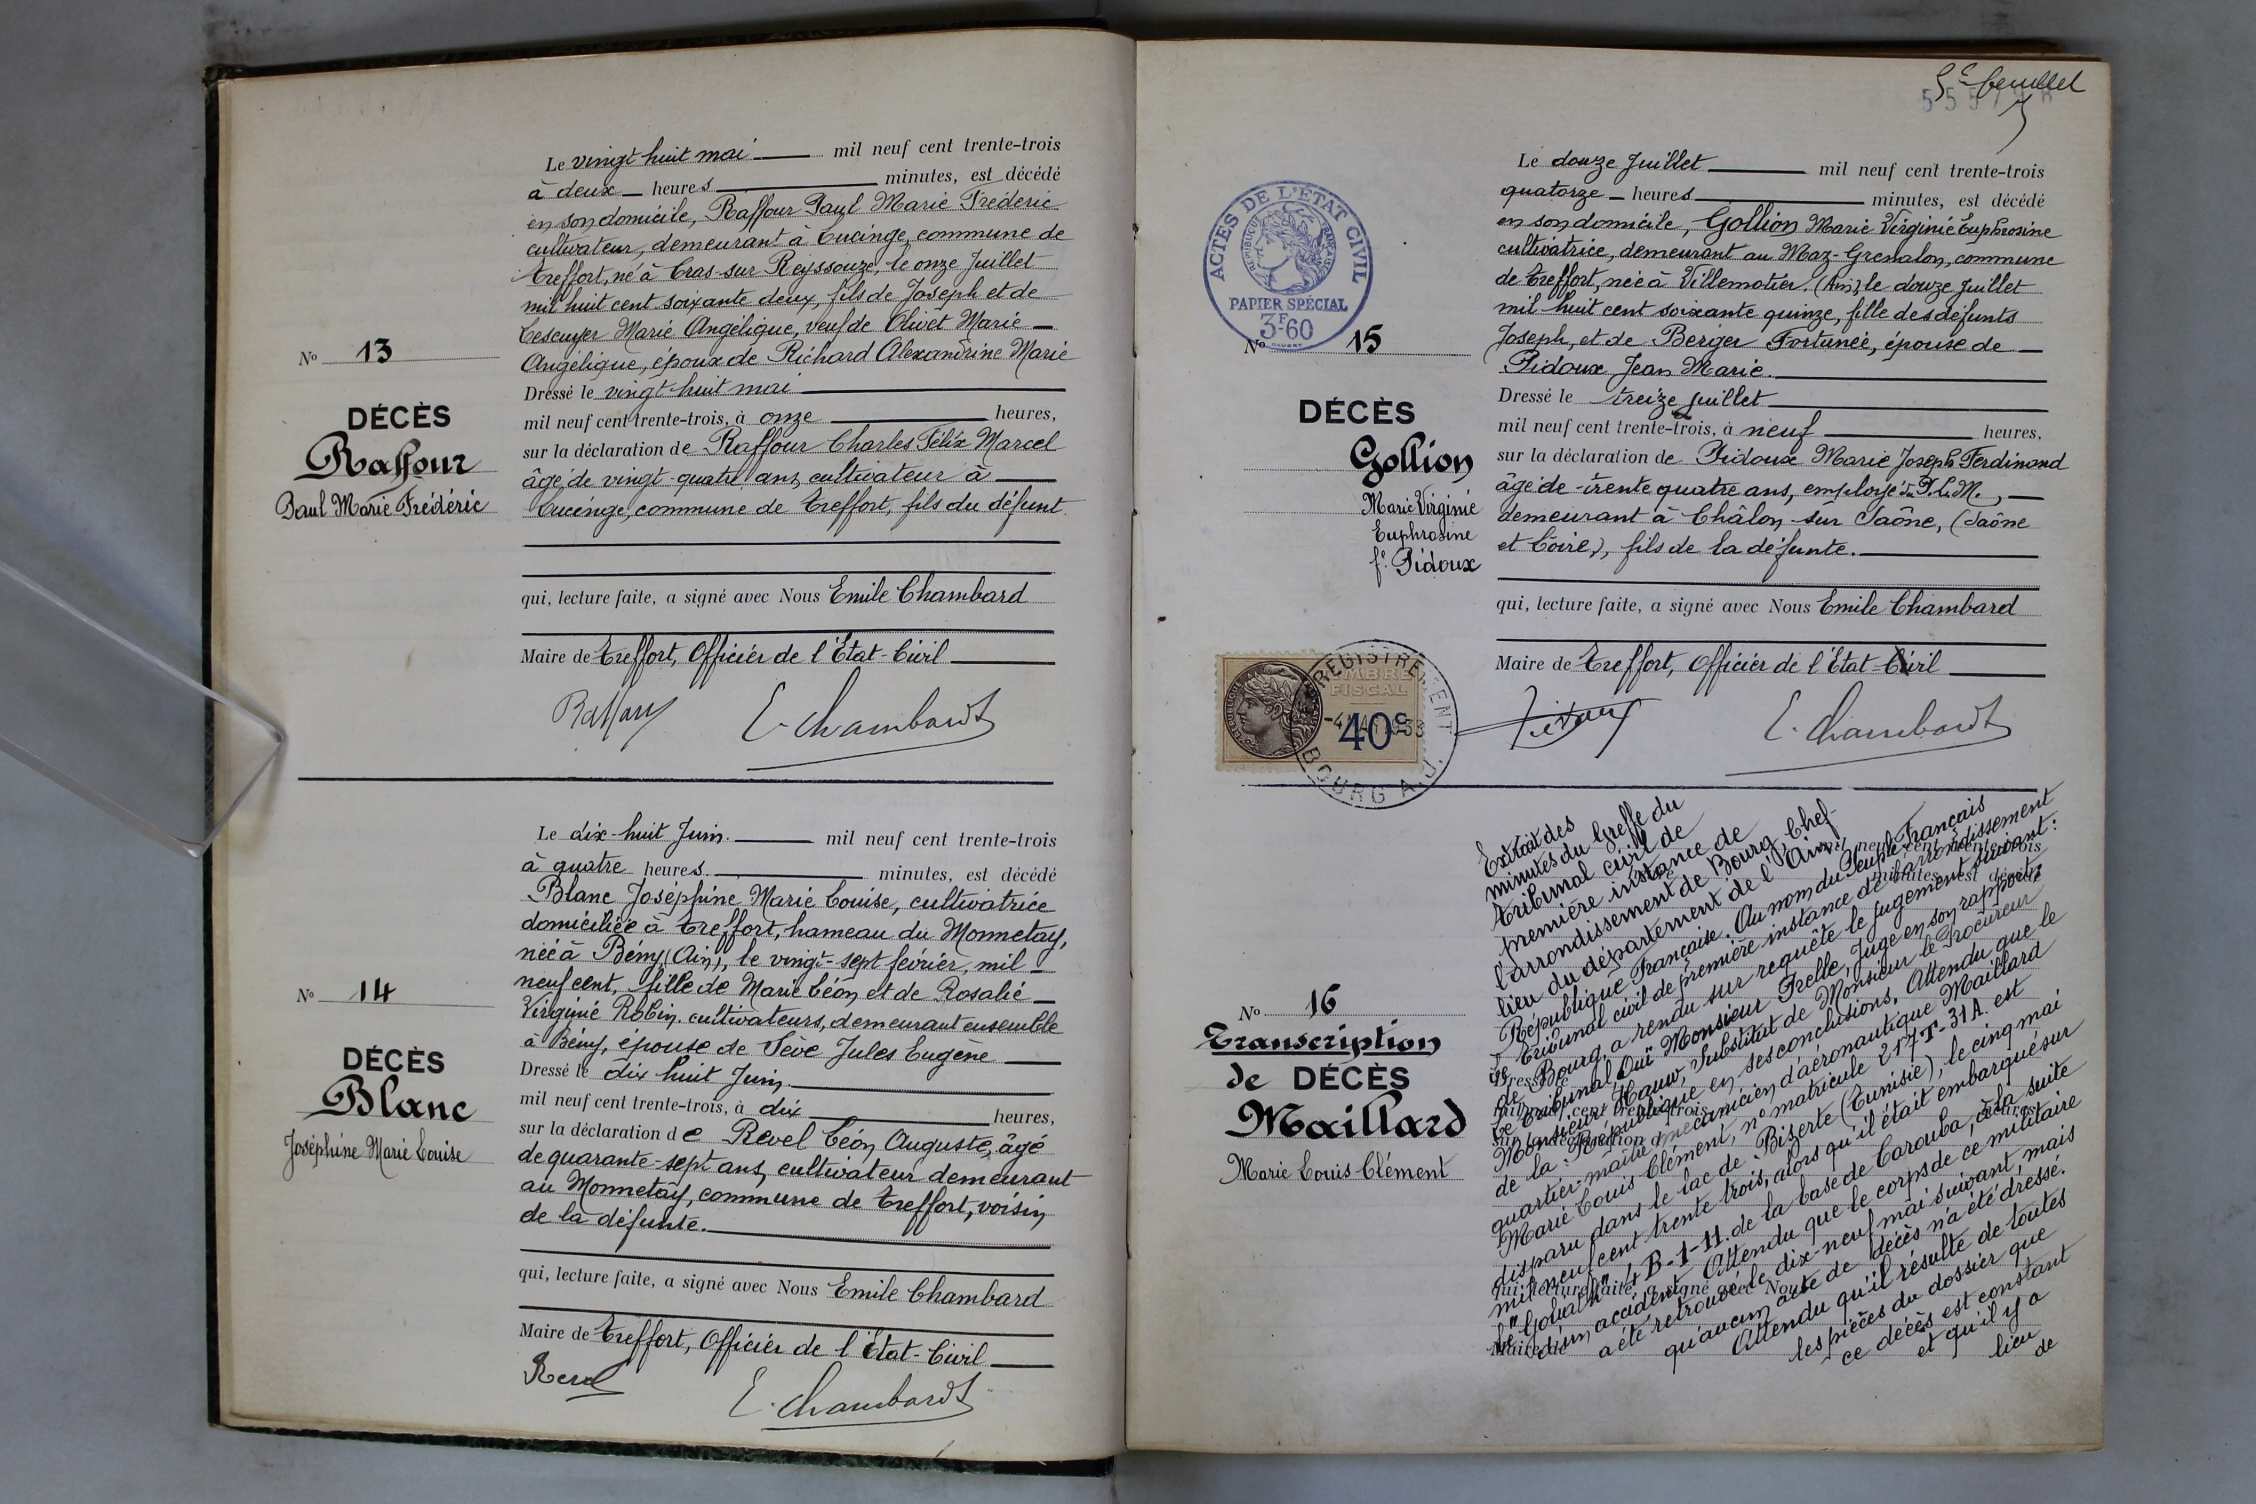 Le vingt huit mai mil neuf cent trente-trois
à deux heures minutes, est décédé
en son domicile, Raffour Paul Marie Frédéric
cultivateur, demeurant à Lucinge, commune de
Treffort, né à Cras-sur Reyssouze, le onze Juillet
mil huit cent soixante deux, fils de Joseph et de
Lescuyer Marie Angélique, veuf de Olivet Marie
Angélique, époux de Richard Alexandrine Marie
Dressé le vingt-huit mai
mil neuf cent trente-trois, à onze heures,
sur la déclaration de Raffour Charles Félix Marcel
âgé de vingt-quatre ans, cultivateur à
Lucinge, commune de Treffort, fils du défunt
qui, lecture faite, a signé avec Nous Emile Chambard
Maire de Treffort, Officier de l'Etat-Civil
Raffour E. Chambard
No 13
DÉCÈS
Raffour
Paul Marie Frédéric
Le dix-huit Juin mil neuf cent trente-trois
à quatre heures minutes, est décédé
Blanc Joséphine Marie Louise, cultivatrice
domiciliée à Treffort, hameau du Monnetay,
née à Bény (Ain), le vingt-sept février, mil
neuf cent, fille de Marie Léon et de Rosalie
Virginie Robin, cultivateurs, demeurant ensemble
à Bény, épouse de Sève Jules Eugène
Dressé le dix huit Juin
mil neuf cent trente-trois, à dix heures,
sur la déclaration de Revel Léon Auguste, âgé
de quarante-sept ans, cultivateur demeurant
au Monnetay, commune de Treffort, voisin
de la défunte.
qui, lecture faite, a signé avec Nous Emile Chambard
Maire de Treffort, Officier de l'Etat-Civil
Revel E. Chambard
No 14
DÉCÈS
Blanc
Joséphine Marie Louise
5e feuillet
ACTES DE L'ÉTAT CIVIL
RÉPUBLIQUE FRANÇAISE
PAPIER SPÉCIAL
3F60
Le douze Juillet mil neuf cent trente-trois
quatorze heures minutes, est décédé
en son domicile, Gollion Marie Virginie Euphrosine
cultivatrice, demeurant au Maz-Grenalon, commune
de Treffort, née à Villemotier (Ain), le douze Juillet
mil huit cent soixante quinze, fille des défunts
Joseph, et de Berger Fortunée, épouse de
Pidoux Jean Marie.
Dressé le treize juillet
mil neuf cent trente-trois, à neuf heures,
sur la déclaration de Pidoux Marie Joseph Ferdinand
âgé de trente quatre ans, employé du P.L.M.,
demeurant à Châlon-sur Saône, (Saône
et Loire), fils de la défunte.
qui, lecture faite, a signé avec Nous Emile Chambard
Maire de Treffort, Officier de l'Etat-Civil
Pidoux E. Chambard
No 15
DÉCÈS
Gollion
Marie Virginie
Euphrosine
fe Pidoux
TIMBRE
FISCAL
40c
ENREGISTREMENT
BOURG A.J.
No 16
Transcription
de DÉCÈS
Maillard
Marie Louis Clément
Extrait des
minutes du Greffe du
Tribunal civil de
première instance de
l'arrondissement de Bourg, Chef-
lieu du département de l'Ain.
République Française. Au nom du Peuple Français
Le Tribunal civil de première instance de l'arrondissement
de Bourg, a rendu sur requête le jugement suivant:
Le Tribunal, Ouï Monsieur Trelle, Juge en son rapport
Monsieur Hauw, Substitut de Monsieur le Procureur
de la République en ses conclusions. Attendu que le
quartier-maître mécanicien d'aéronautique Maillard
Marie Louis Clément, no matricule 217-T-31A. est
disparu dans le lac de Bizerte (Tunisie), le cinq mai
mil neuf cent trente trois, alors qu'il était embarqué sur
le "Goliath" 4 B-1-11. de la base de Karouba, à la suite
d'un accident. Attendu que le corps de ce militaire
a été retrouvé le dix-neuf mai suivant, mais
qu'aucun acte de décès n'a été dressé.
Attendu qu'il résulte de toutes
les pièces du dossier que
ce décès est constant
et qu'il y a
lieu
de